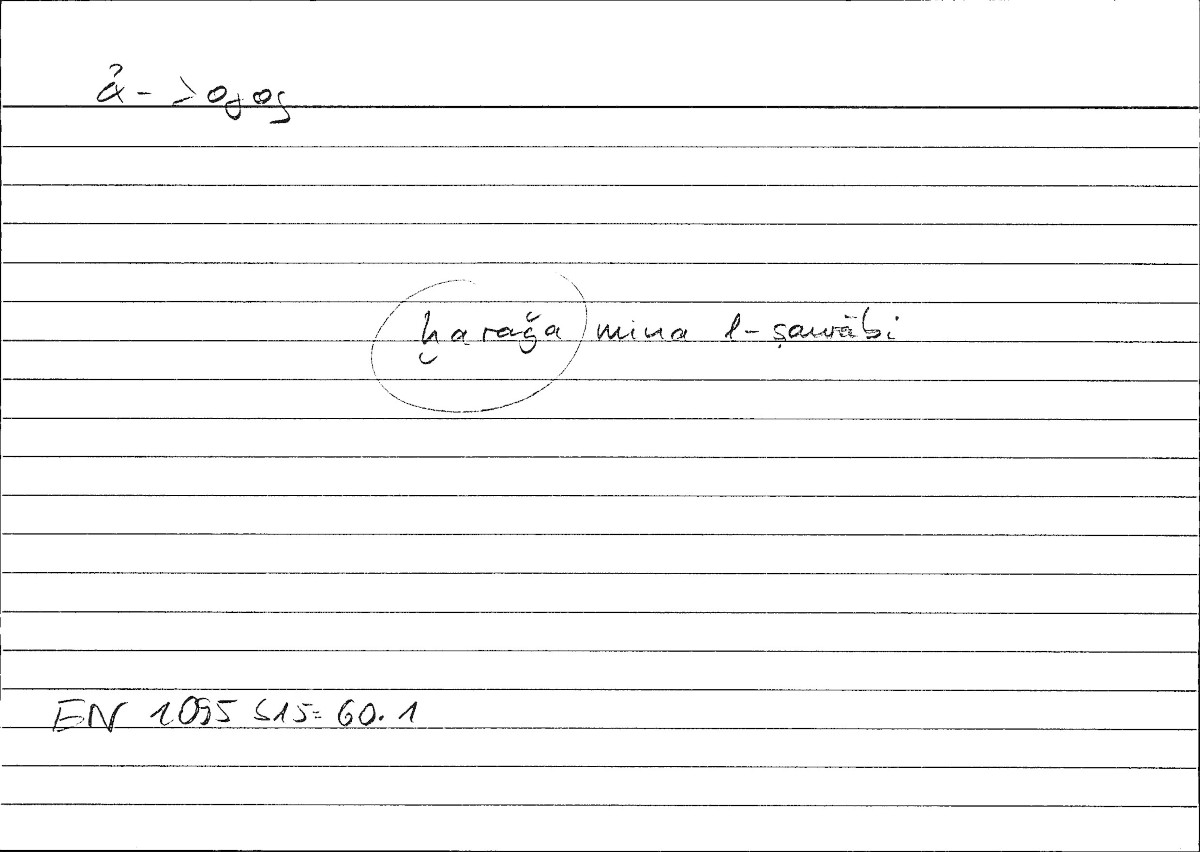 ἄ-λογος
ḫaraǧa mina l-ṣawābi
EN 1095 b15 = 60.1